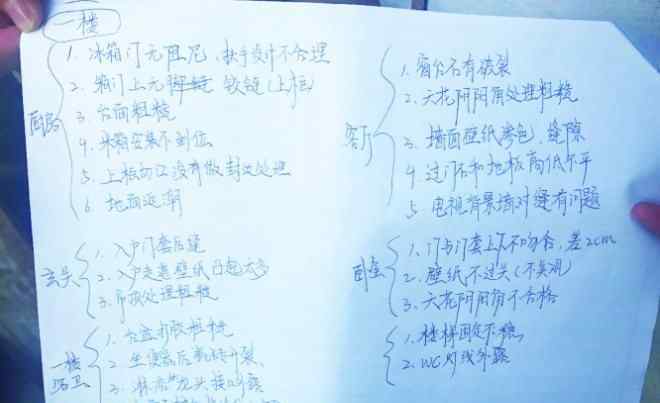 一楼
厨房
1. 冰箱门无阻尼、扶手设计不合理
2. 箱门上无 铰链(上柜)
3. 台面粗糙
4. 米箱安装不到位
5. 上板切口没有做封边处理
6. 地面返潮
玄关
1. 入户门套后缝
2. 入户走道壁纸凸起太多
3. 吊顶处理粗糙
一楼
公卫
1. 台盆打胶粗糙
2. 坐便器后 开裂、
3. 淋浴 龙头接口外露
客厅
1. 窗台石有破裂
2. 六花阴阳角处理粗糙
3. 墙面壁纸掺色、缝隙
4. 过门石和地板高低不平
5. 电视背景墙对缝有问题
卧室
1. 门与门套上下不吻合,差2cm
2. 壁纸不过关(不美观)
3. 六花阴阳角不合格
1. 楼梯固定不稳,
2. WC 灯线外露